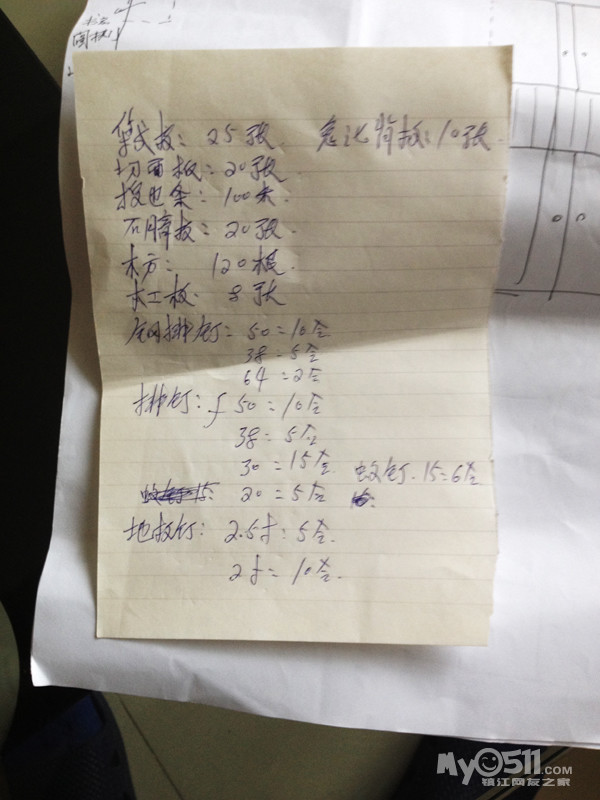 板: 25张 背板: 10张
切面板: 20张
条: 100米
石膏板: 20张
木方: 120根
木工板: 8张
钢排钉: 50=10合
38=5合
64=2合
排钉: f50=10合
38=5合
30=15合
蚊钉. 15=6合
20=5合
地板钉: 2.5寸=5合.
2寸=10合.
My0511.COM
镇江网友之家